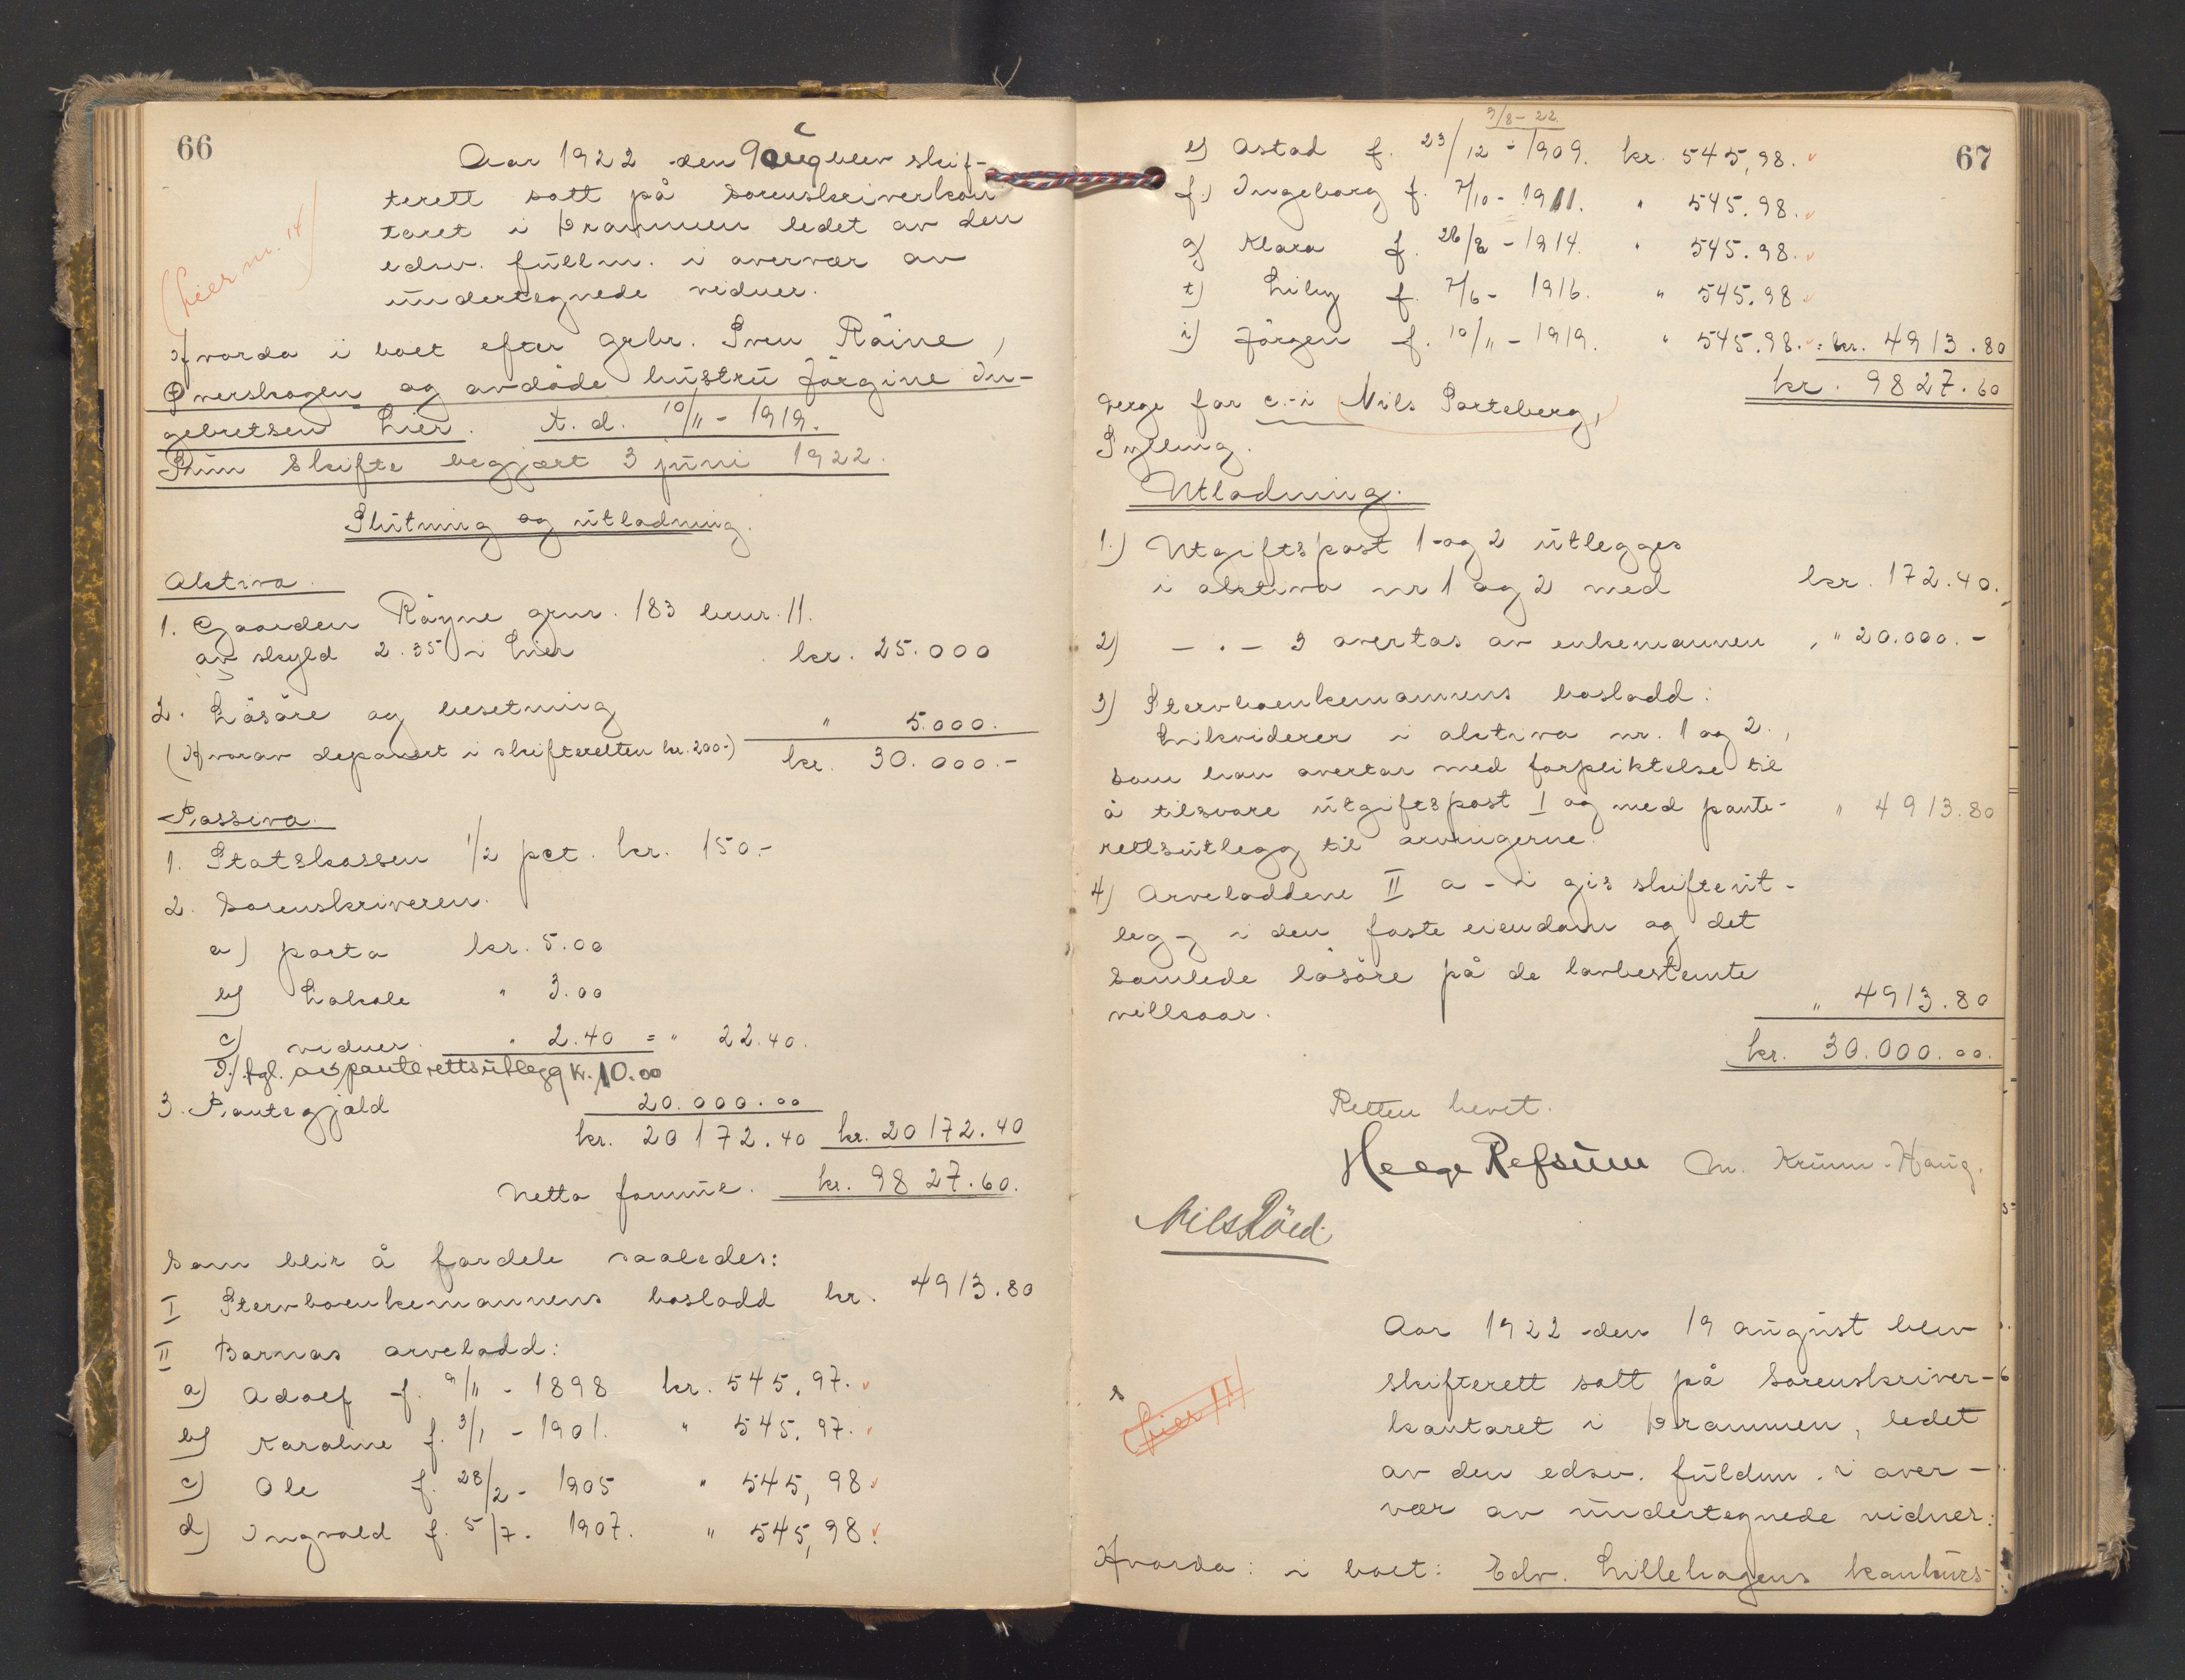 66
Aar 1922 den 9 aug blev skif-
terett satt på sorenskriverkon
toret i Drammen ledet av den
edsv. fullm. i overvær av
undertegnede vidner.
(Lier nr. 14)
Hvorda i boet efter grbr. Sven Röine,
Overskogen og avdöde hustru Jörgine In-
gebretsen Lier. A. d. 10/11 - 1919.
Skifte begjært 3 juni 1922.
Slutning og utlodning.
Aktiva.
1. Gaarden Röyne grnr. 183 brnr. 11.
av skyld 2.35 i Lier kr. 25.000
2. Lösöre og besetning " 5.000.
(Hvorav deponert i skifteretten kr. 200-) kr. 30.000.-
Passiva.
1. Statskassen 1/2 pct. kr. 150.-
2. Sorenskriveren.
a) porto kr. 5.00
b) Lokale " 3.00
c) vidner. " 2.40 = " 22.40.
D./. tgl. av panterettsutlegg kr. 10.00
3. Pantegjæld 20.000.00
kr. 20172.40 kr. 20172.40
Netto formue. kr. 9827.60.
Som blir å fordele saaledes:
I Stervboenkemannens boslodd kr. 4913.80
II Barnas arvelodd:
a) Adolf f. 9/11 - 1898 kr. 545.97.
b) Karoline f. 3/1 - 1901. " 545.97.
c) Ole f. 28/2 - 1905 " 545,98
d) Ingvald f. 5/7 - 1907. " 545,98.
67
9/8 - 22.
e) Astad f. 23/12 - 1909. kr. 545,98.
f.) Ingeborg f. 7/10 - 1911. " 545.98.
g) Klara f. 26/8 - 1914. " 545.98.
t) Lily f. 7/6 - 1916. " 545.98
i) Jörgen f. 10/11 - 1919. " 545.98. = kr. 4913.80
kr. 9827.60
Verge for c.-i Nils Porteberg,
Sylling.
Utlodning.
1.) Utgiftspost 1 og 2 utlegges
i aktiva nr 1 og 2 med kr. 172.40.
2) - " - 3 overtas av enkemannen, " 20.000.-
3) Stervboenkemannens boslodd:
Likviderer i aktiva nr. 1 og 2.,
som han overtar med forpliktelse til
å tilsvare utgiftspost I og med pante- " 4913.80
rettsutlegg til arvingerne.
4) Arveloddene II a - i gis skifteut-
leg-g i den faste eiendom og det
samlede lösöre på de lovbestemte
villkaar. " 4913.80
kr. 30.000.00.
Retten hevet.
Helge Refsum M. Krumm-Haug.
Nils Röed
Aar 1922 den 19 august blev
skifterett satt på Sorenskriver-
kontoret i Drammen, ledet
av den edsv. fuldm. i over-
vær av undertegnede vidner:
(Lier 11)
Hvorda: i boet: Edv. Lillehagens konkurs-